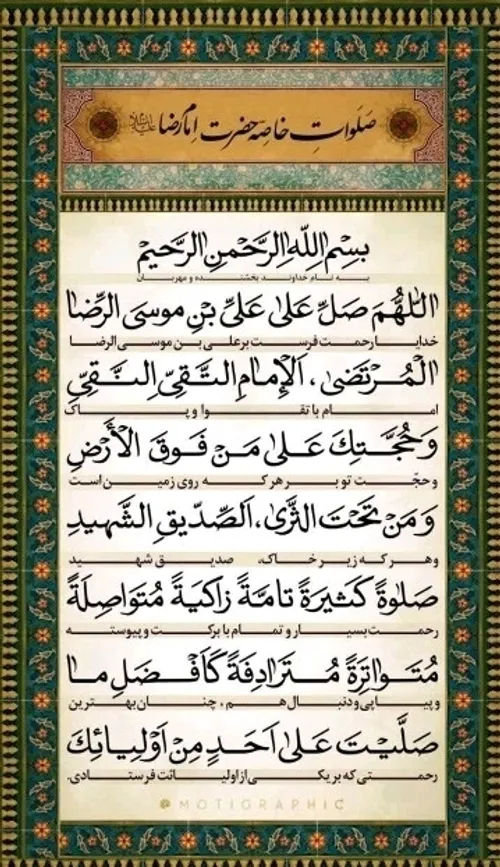 صَلَواتِ خاصهٔ حضرت امام رضا علیه‌السلام
بِسْمِ اللّٰهِ الرَّحْمٰنِ الرَّحیمْ
به نام خداوند بخشنده و مهربان
اَللّٰهُمَّ صَلِّ عَلیٰ عَلیِّ بْنِ موسَی الرِّضَا
خدایا رحمت فرست بر علی بن موسی الرضا
الْمُرْتَضیٰ، اَلْإِمامِ التَّقیِّ النَّقیِّ
امام با تقوا و پاک
وَحُجَّتِكَ عَلیٰ مَنْ فَوقَ الْأَرْضِ
و حجّت تو بر هر که روی زمین است
وَ مَنْ تَحْتَ الثَّریٰ، اَلصِّدّیقِ الشَّهیدِ
و هر که زیر خاک، صدیق شهید
صَلوٰةً كَثیرَةً تامَّةً زاكیَةً مُتَوَاصِلَةً
رحمت بسیار و تمام با برکت و پیوسته
مُتَواتِرَةً مُتَرادِفَةً كَاَفْضَلِ ما
و پیاپی و دنبال هم، چنان بهترین
صَلَّیْتَ عَلیٰ اَحَدٍ مِنْ اَوْلِیائِكَ
رحمتی که بر یکی از اولیائت فرستادی.
@MOTIGRAPHIC